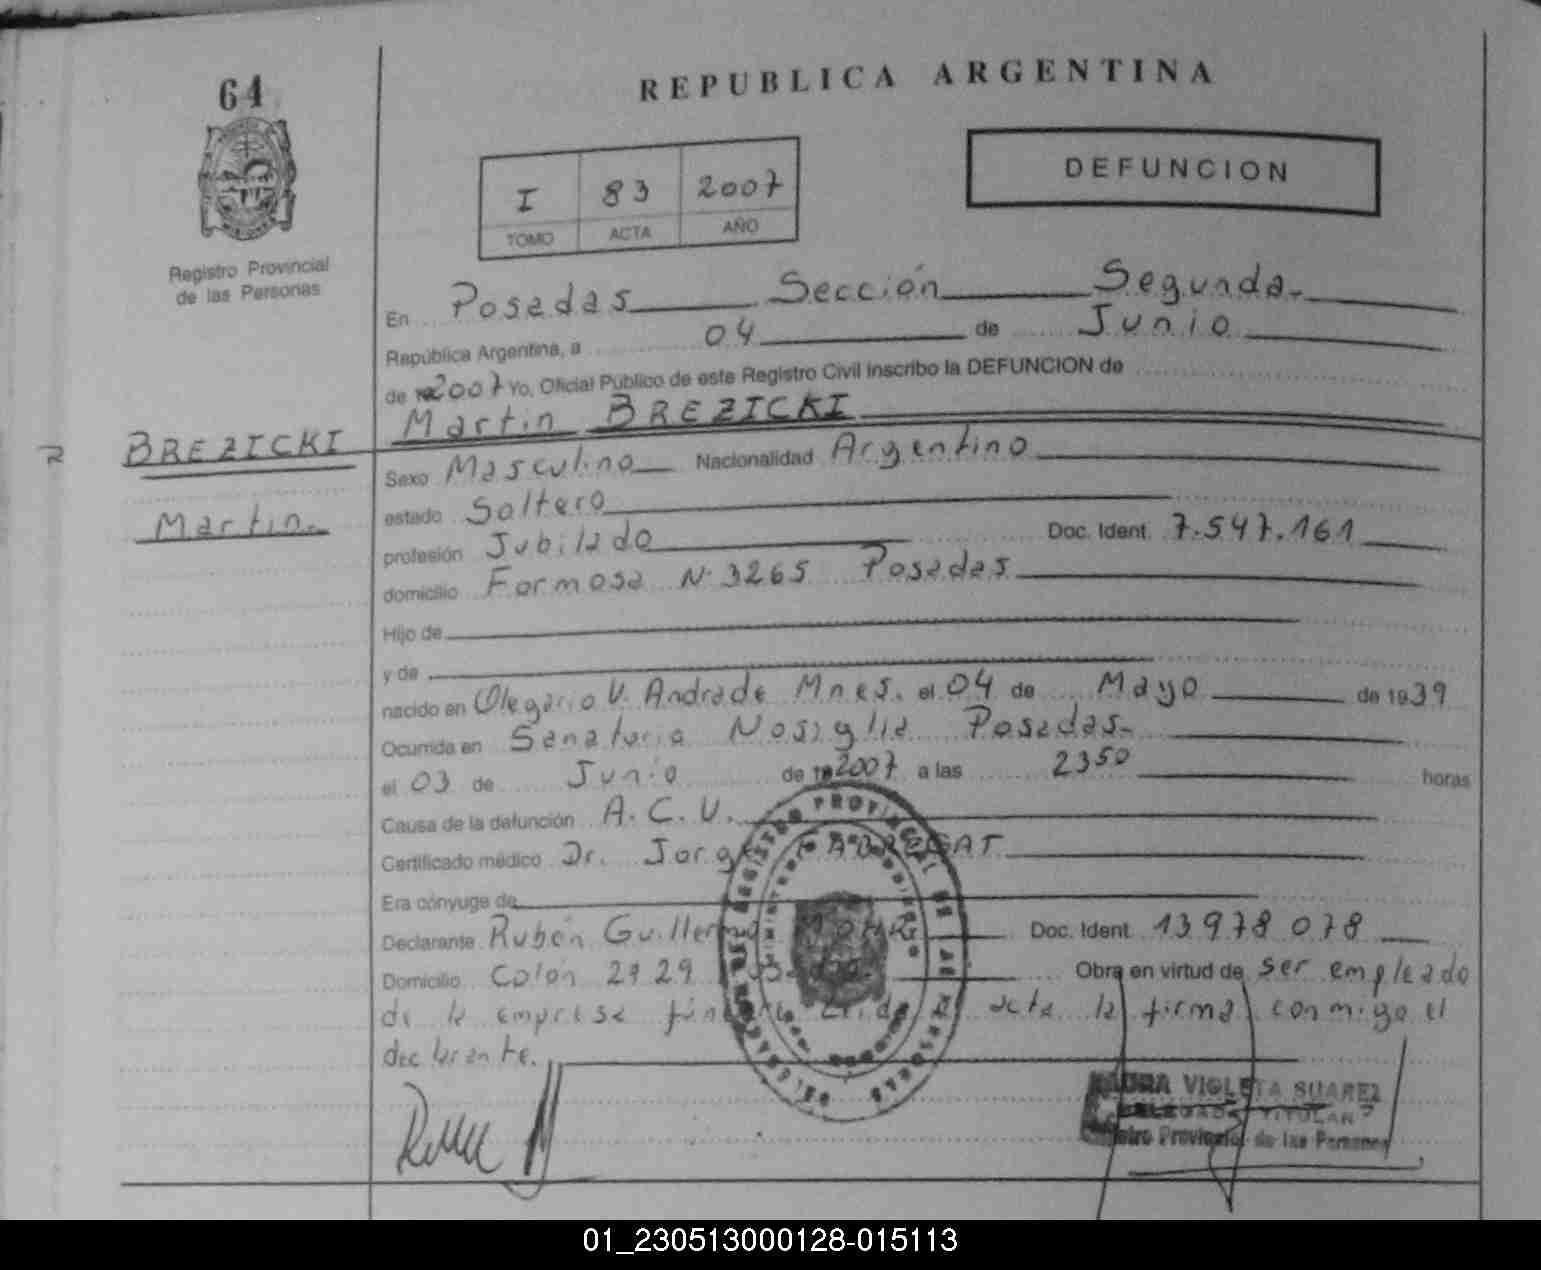 64
REPUBLICA ARGENTINA
DEFUNCION
I 83 2007
TOMO ACTA AÑO
Registro Provincial
de las Personas
En Posadas Sección Segunda.-
República Argentina, a 04 de Junio
de 2007 Yo, Oficial Público de este Registro Civil inscribo la DEFUNCION de
Martin BREZICKI
BREZICKI
Martin.-
Sexo Masculino Nacionalidad Argentino
estado Soltero
profesión Jubilado Doc. Ident. 7.547.161
domicilio Formosa N° 3265 Posadas
Hijo de
y de
nacido en Olegario V. Andrade Mnes. el 04 de Mayo de 1939
Ocurrida en Sanatorio Nosiglia Posadas.-
el 03 de Junio de 2007 a las 2350 horas
Causa de la defunción A. C. V.
Certificado médico Dr. Jorge
Era cónyuge de
Declarante Rubén Guillermo Doc. Ident 13978078
Domicilio Colón 2729 Posadas Obra en virtud de ser empleado
de la empresa fúnebre Leida el acta la firma conmigo el
declarante.
REGISTRO PROVINCIAL DE LAS PERSONAS
VIOLETA SUAREZ
TITULAR
Registro Provincial de las Personas
01_230513000128-015113